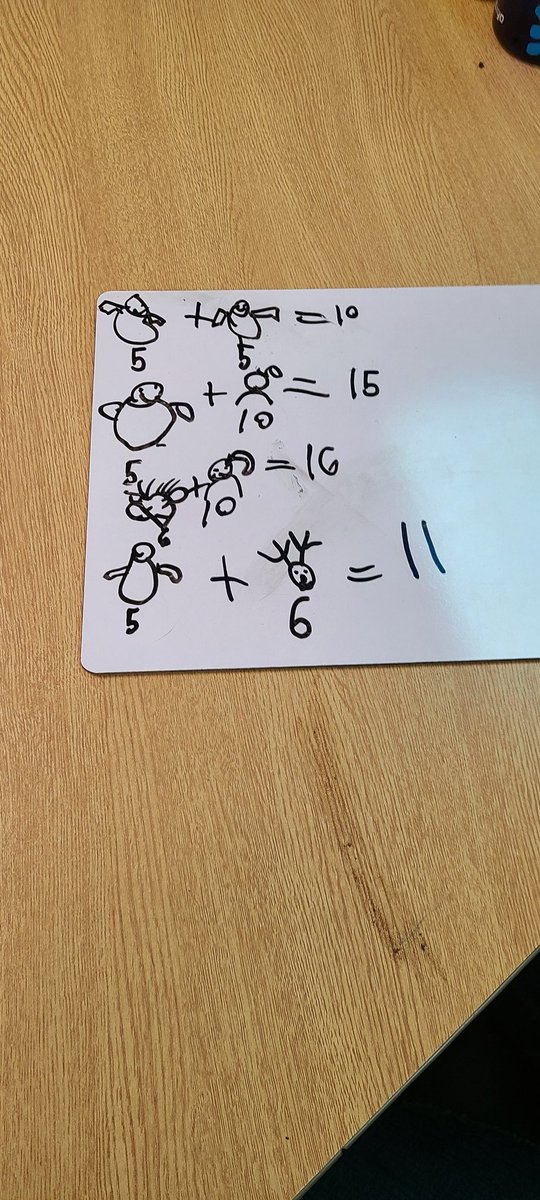 + = 10
5 5
+ = 15
5 10
+ = 16
6 10
+ = 11
5 6